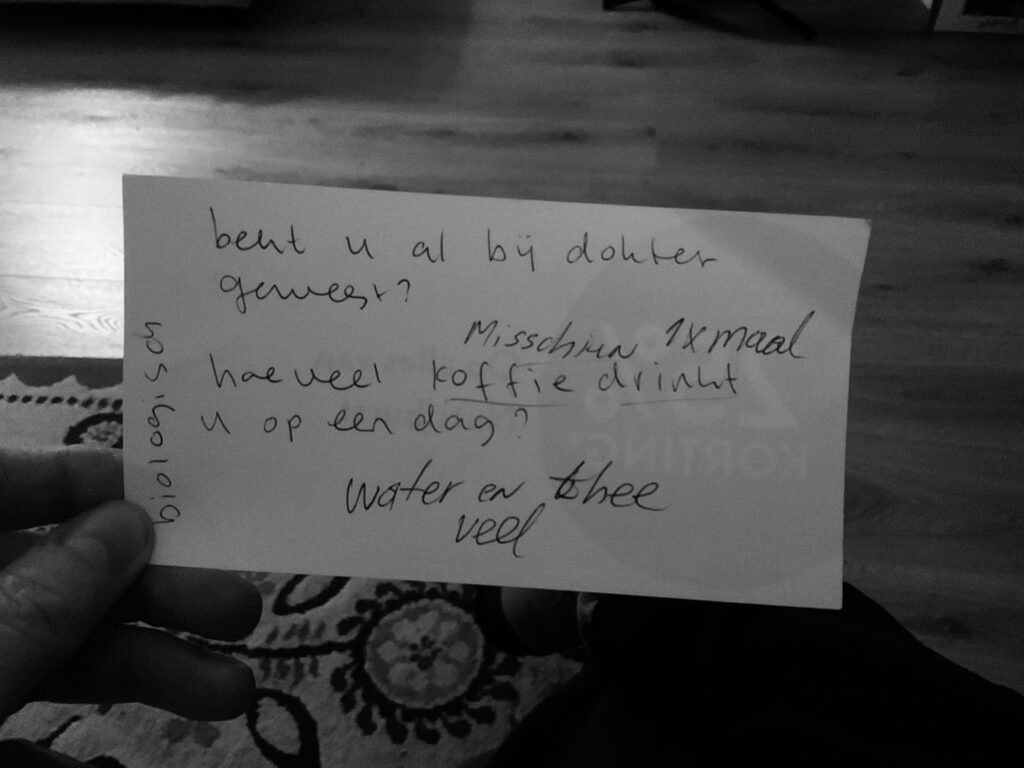 bent u al bij dokter
geweest?
Misschien 1x maal
hoeveel koffie drinkt
u op een dag?
water en thee
veel
biologisch
KORTING